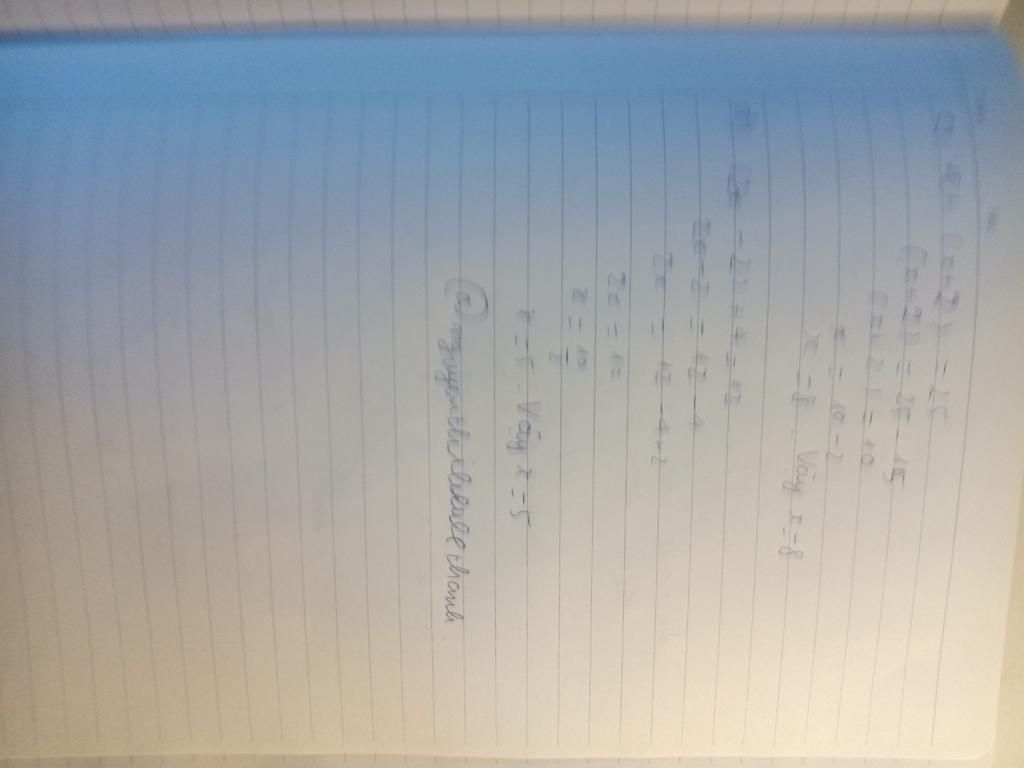 (x+2) = 25
(x+2) = 25 - 15
(x+2) = 10
x = 10 - 2
x = 8. Vậy x = 8
(2x - 2) + 4 = 12
2x - 2 = 12 - 4
2x = 12 - 4 + 2
2x = 10
x = 10/2
x = 5. Vậy x = 5